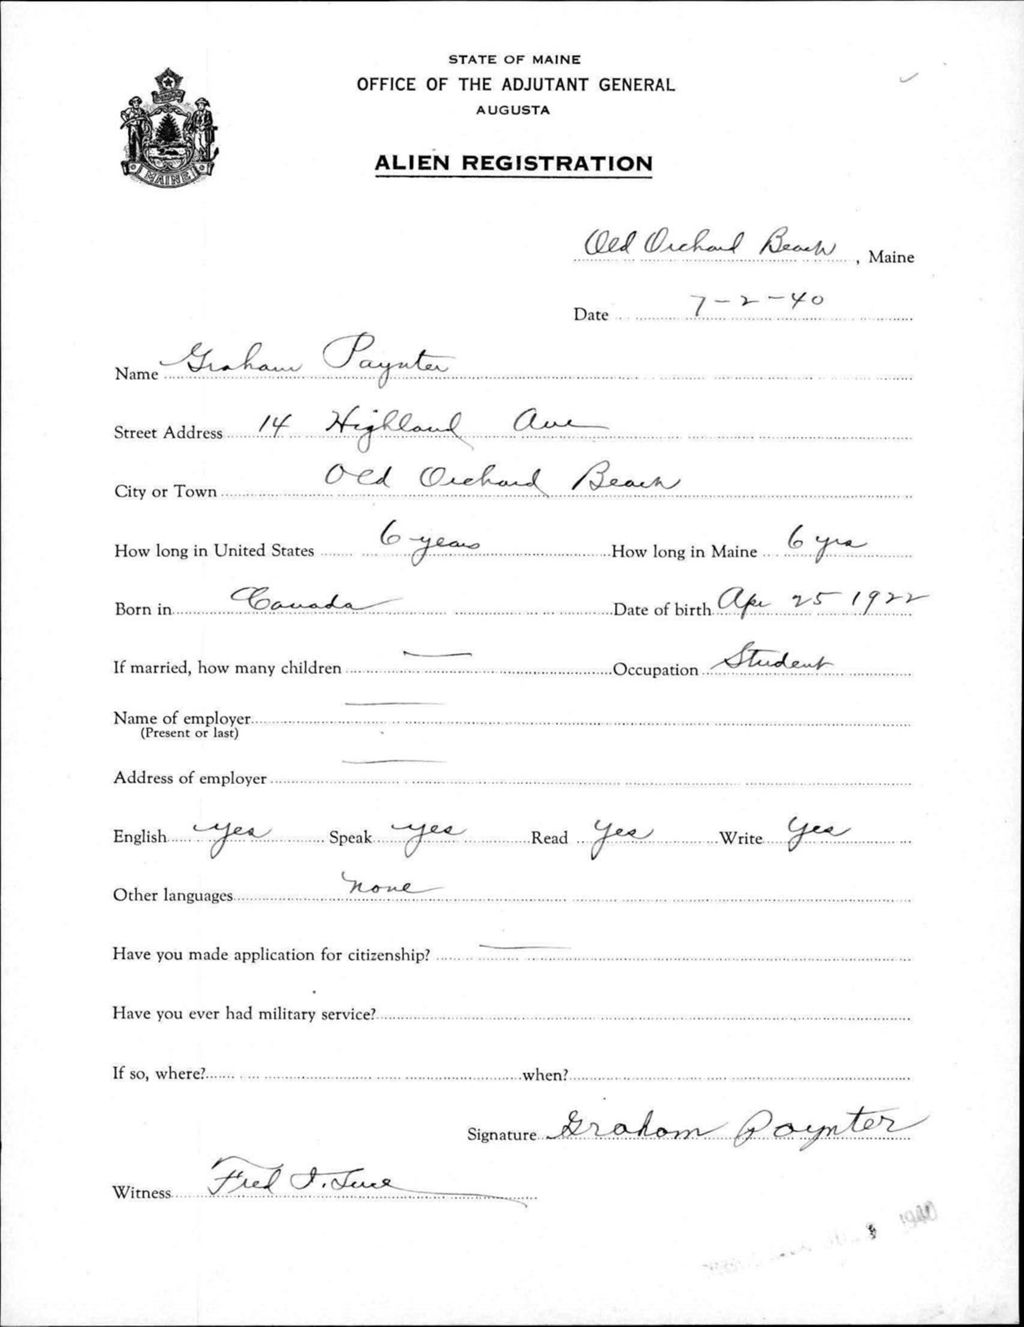 STATE OF MAINE
OFFICE OF THE ADJUTANT GENERAL
AUGUSTA
MAINE
ALIEN REGISTRATION
Old Orchard Beach, Maine
Date 7-2-40
Name Graham Paynter
Street Address 14 Highland Ave
City or Town Old Orchard Beach
How long in United States 6 years How long in Maine 6 yrs
Born in Canada Date of birth Apr 25 1922
If married, how many children — Occupation Student
Name of employer —
(Present or last)
Address of employer —
English yes Speak yes Read Yes Write Yes
Other languages none
Have you made application for citizenship? —
Have you ever had military service?
If so, where? when?
Signature Graham Paynter
Witness Fred I.